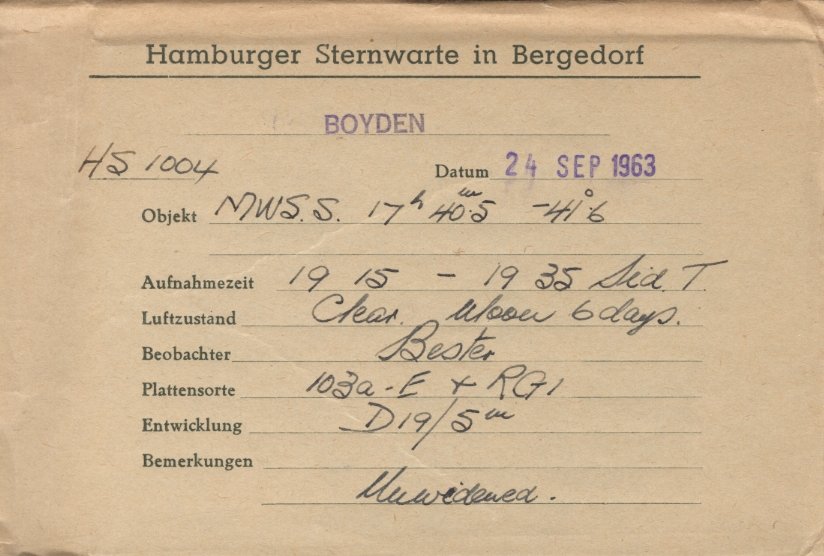 Hamburger Sternwarte in Bergedorf
BOYDEN
HS 1004 Datum 24 SEP 1963
Objekt MWS.S. 17h 40m.5 -41°.6
Aufnahmezeit 19 15 - 19 35 Sid. T.
Luftzustand Clear. Moon 6 days.
Beobachter Bester
Plattensorte 103a-E + RG1
Entwicklung D19/5m
Bemerkungen
Unwidened.